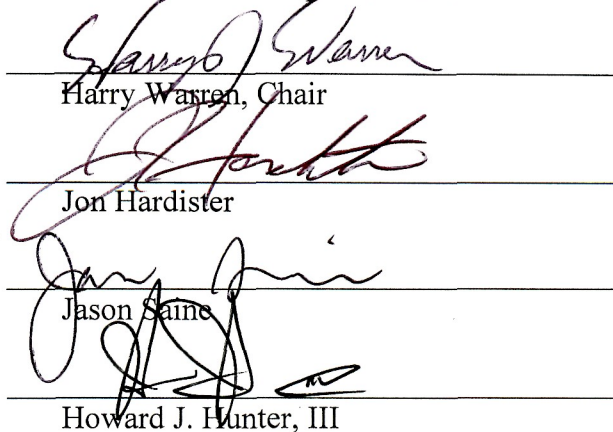 Harry Warren
Harry Warren, Chair
Jon Hardister
Jason Saine
Jason Saine
Howard J. Hunter, III